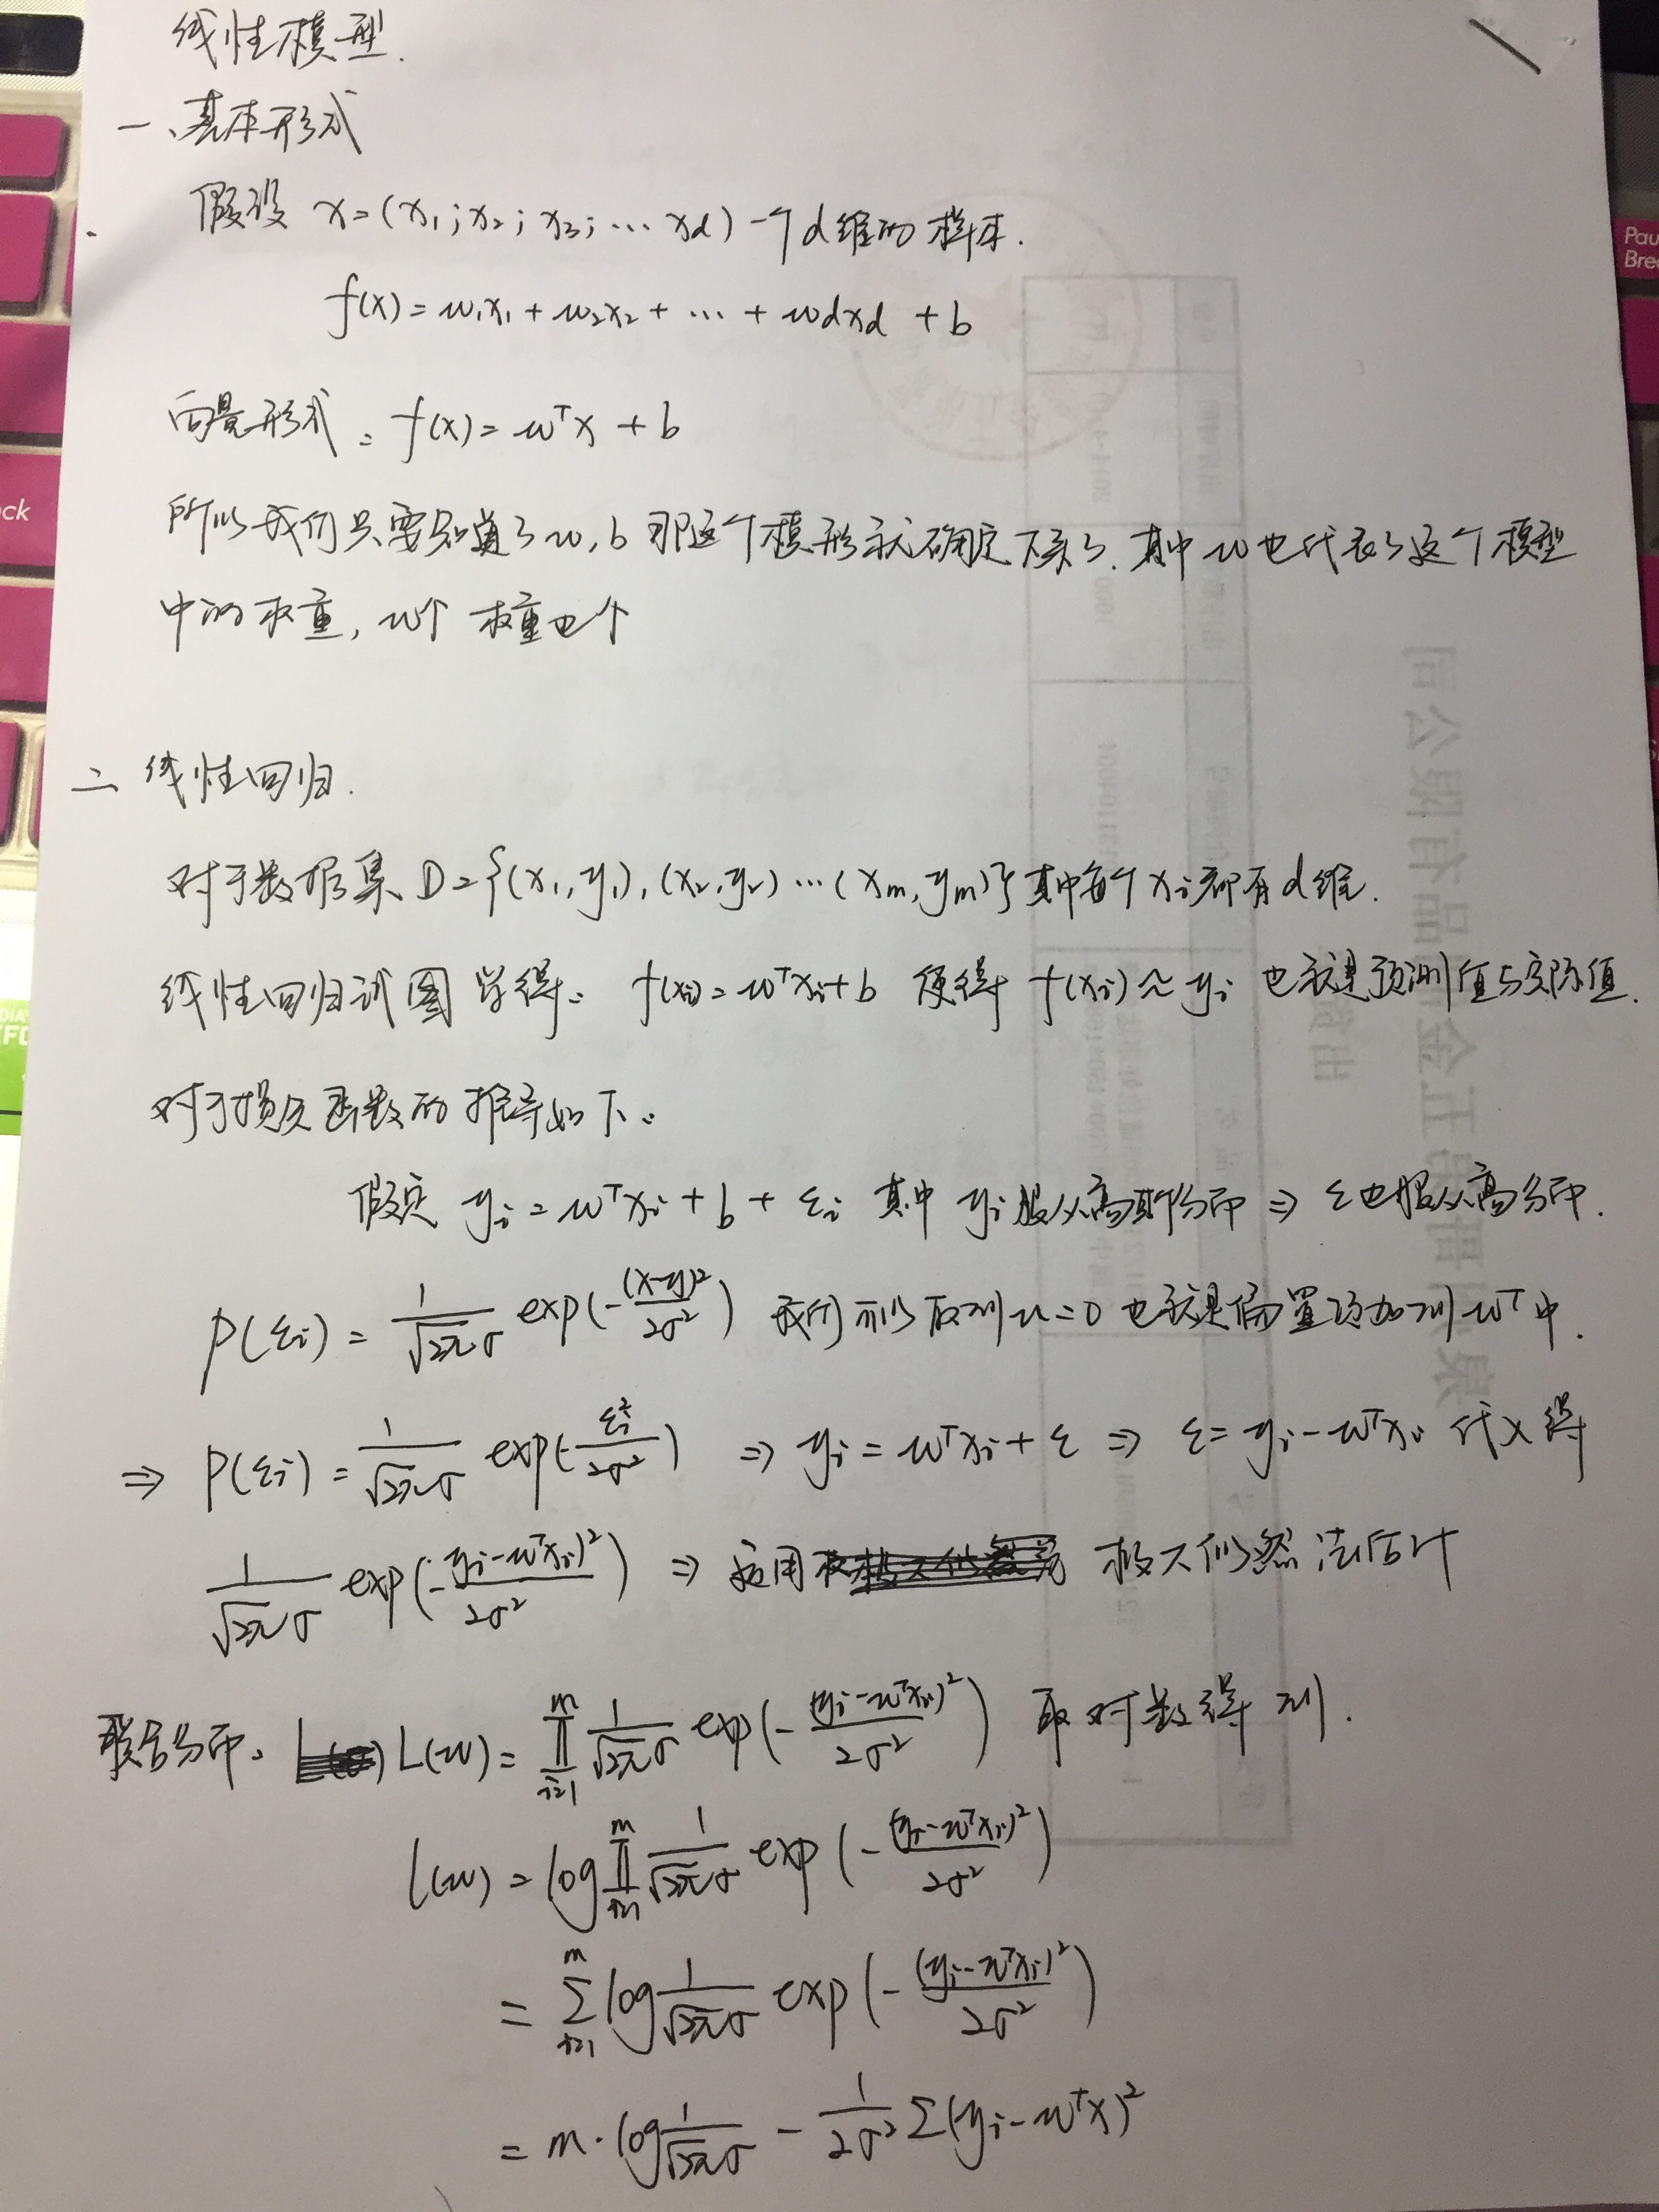 线性模型.
一、基本形式
假设 x=(x₁;x₂;x₃;…xd) 一个d维的样本.
f(x)=w₁x₁+w₂x₂+…+wdxd+b
向量形式: f(x)=wᵀx+b
所以我们只要知道了w,b 那这个模形就确定下来了. 其中w也代表了这个模型
中的权重, w个 权重也个
二 线性回归.
对于数据集 D={(x₁,y₁),(x₂,y₂)…(xm,ym)} 其中每个xi都有d维.
线性回归试图学得: f(xi)=wᵀxi+b 使得 f(xi)≈yi 也就是预测值与实际值.
对于损失函数的推导如下:
假定 yi=wᵀxi+b+εi 其中 yi服从高斯分布 ⇒ ε也服从高分布.
p(εi)=1/(√2π σ) exp(-(x-y)²/2σ²) 我们可以取到u=0 也就是偏置项加到wᵀ中.
⇒ p(εi)=1/(√2π σ) exp(-εi²/2σ²) ⇒ yi=wᵀxi+ε ⇒ ε=yi-wᵀxi 代入得
1/(√2π σ) exp(-(yi-wᵀxi)²/2σ²) ⇒ 运用 极大似然法估计
联合分布: L(w)=∏_{i=1}^{m} 1/(√2π σ) exp(-(yi-wᵀxi)²/2σ²) 取对数得到.
l(w)=log∏_{i=1}^{m} 1/(√2π σ) exp(-(yi-wᵀxi)²/2σ²)
=∑_{i=1}^{m} log 1/(√2π σ) exp(-(yi-wᵀxi)²/2σ²)
=m·log 1/(√2π σ) - 1/2σ² ∑(yi-wᵀx)²
Pau
Brea
ck